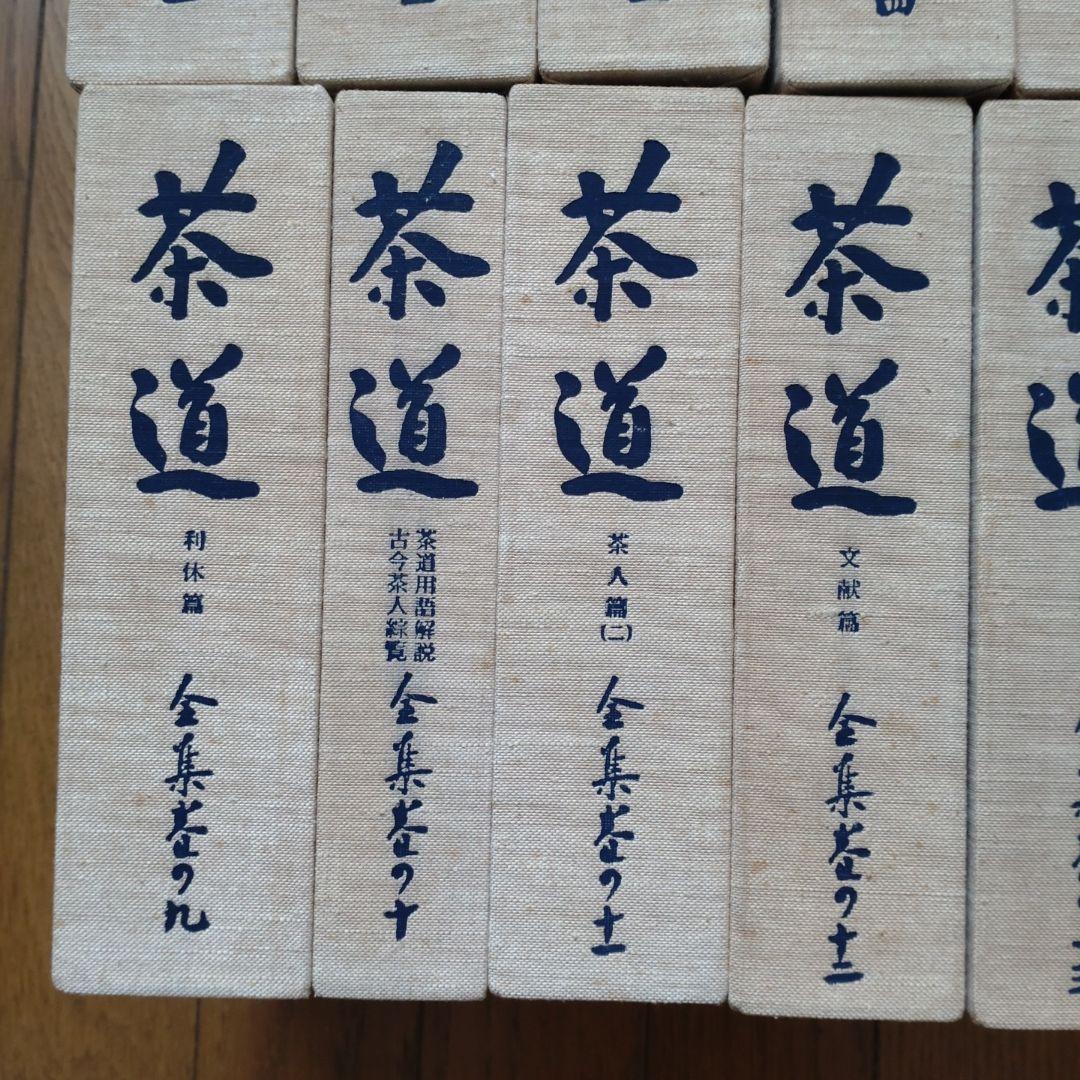 四
茶道
利休篇
全集巻の九
茶道
茶道用語解説
古今茶人綜覧
全集巻の十
茶道
茶人篇(二)
全集巻の十一
茶道
文献篇
全集巻の十二
茶道